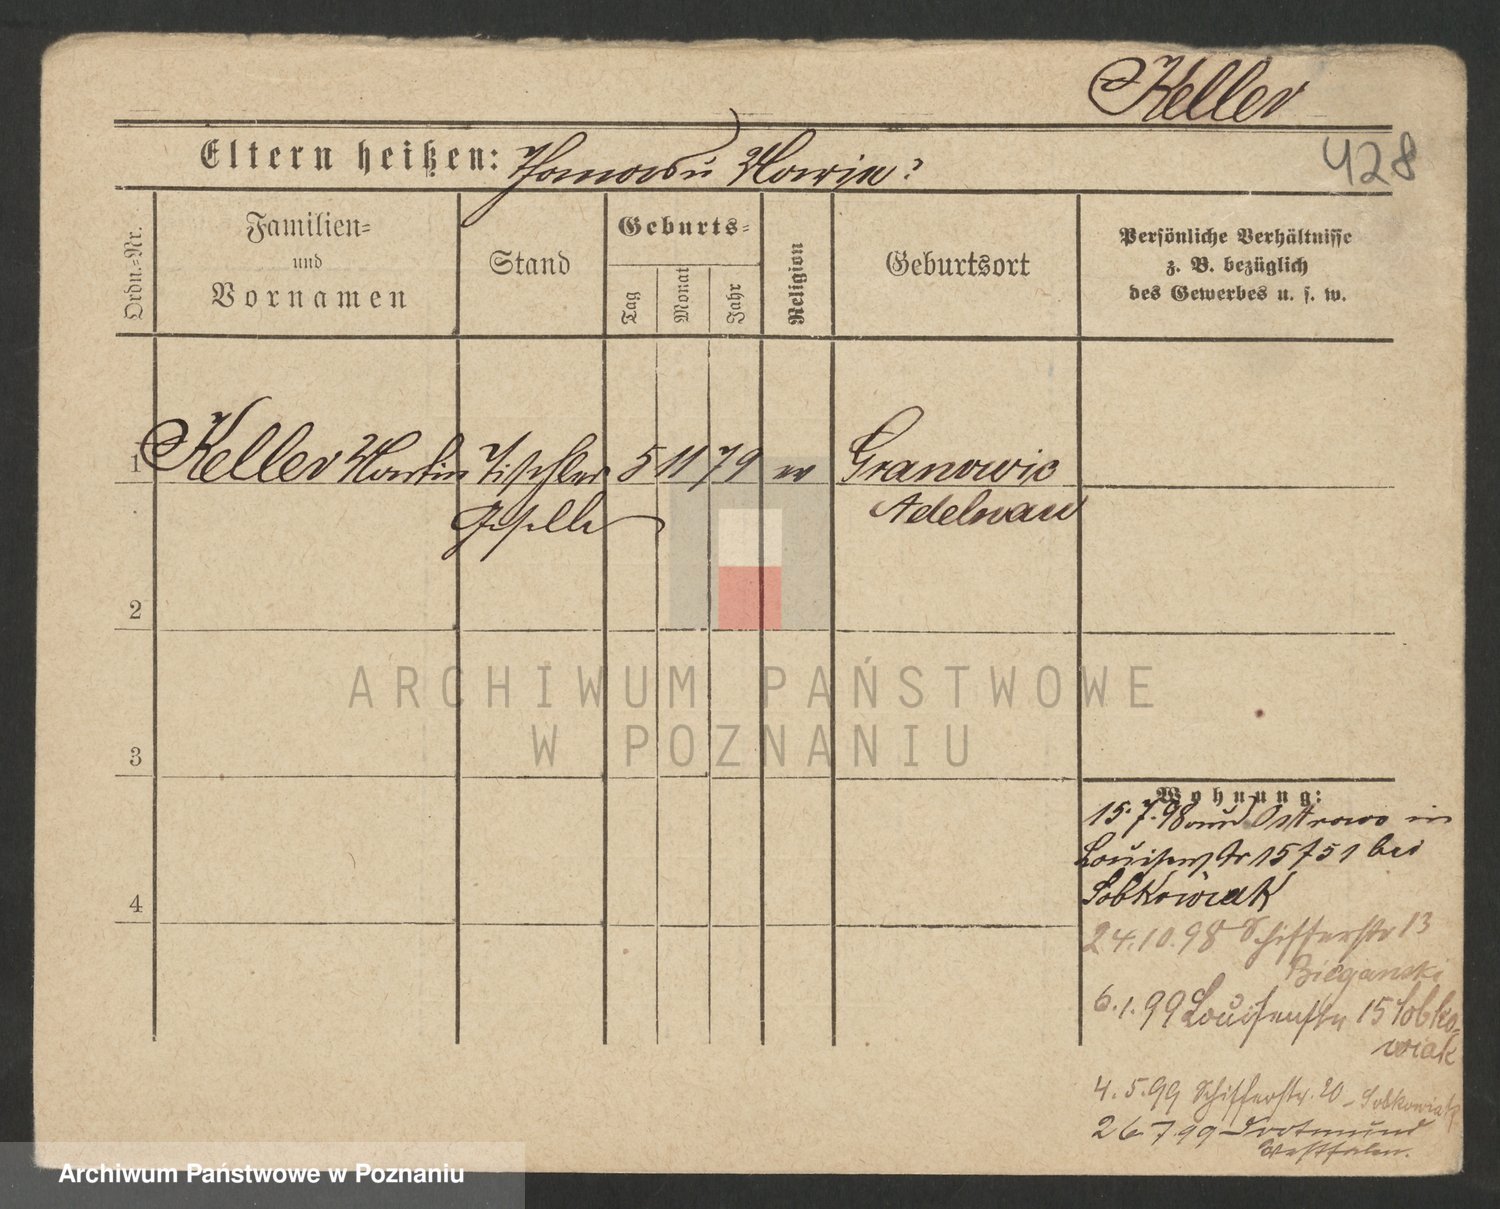 Keller
Eltern heißen: Thomas u Marie?
428
Ordn.-Nr.
Familien-
und
Vornamen
Stand
Geburts-
Tag
Monat
Jahr
Religion
Geburtsort
Persönliche Verhältnisse
z. B. bezüglich
des Gewerbes u. s. w.
1 Keller Martin Tischler 5 11 79 Granowic
Geselle Adelnau
2
3
4
Wohnung:
15.7.98 aus Ostrowo in
Louisenstr 15 bei
Sobkowiak
24.10.98 Schifferstr 13
Bieganski
6.1.99 Louisenstr 15 Sobko-
wiak
4.5.99 Schifferstr. 20 - Sobkowiak
26.7.99 Dortmund
Westfalen.
ARCHIWUM PAŃSTWOWE
W POZNANIU
Archiwum Państwowe w Poznaniu